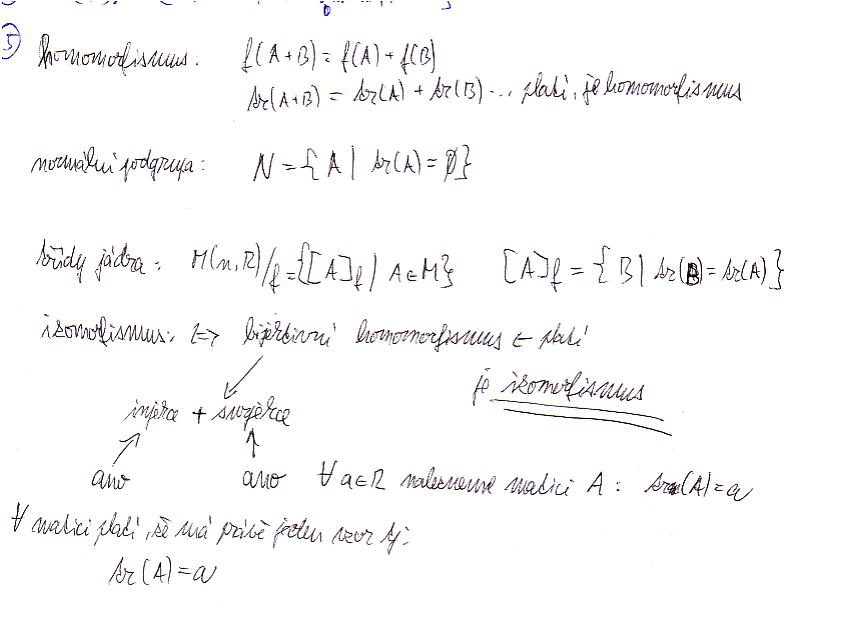 5) homomorfismus: f(A+B) = f(A) + f(B)
tr(A+B) = tr(A) + tr(B) ... platí, je homomorfismus
normální podgrupa: N = { A | tr(A) = ∅ }
třídy jádra: M(n,R)/f = {[A]f | A∈M} [A]f = { B | tr(B) = tr(A) }
izomorfismus: <=> bijektivní homomorfismus ← platí
je izomorfismus
injekce + surjekce
ano ano ∀ a∈R nalezneme matici A: tr(A) = a
∀ matici platí, že má právě jeden vzor tj:
tr(A) = a